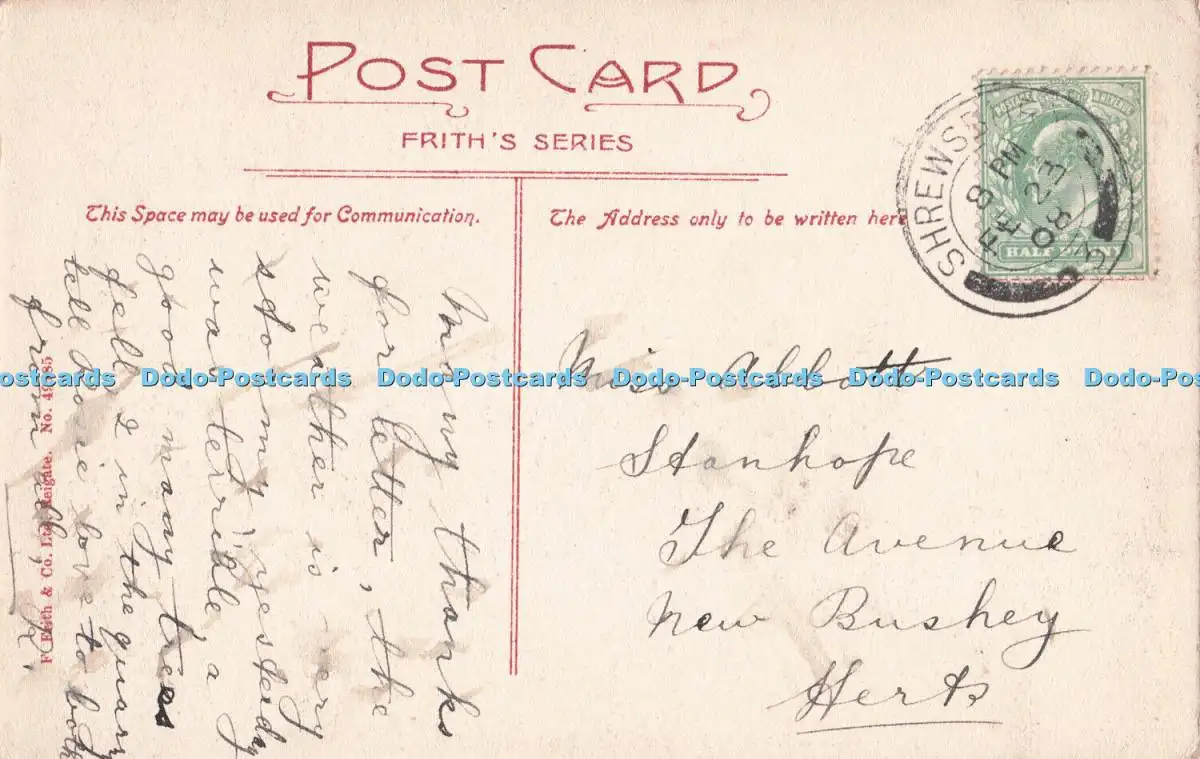 POST CARD
FRITH'S SERIES
This Space may be used for Communication.
The Address only to be written here
SHREWSBURY
8 PM
FE 23
08
POSTAGE REVENUE
HALF PENNY
Many thanks
for letter, the
weather is very
stormy yesterday
was terrible a
good many trees
fell 2 in the quarry
tell Rosie love to both
from all,
Miss Abbott
Stanhope
The Avenue
New Bushey
Herts
F. Frith & Co. Ltd. Reigate.
Dodo-Postcards Dodo-Postcards Dodo-Postcards Dodo-Postcards Dodo-Postcards Dodo-Postcards